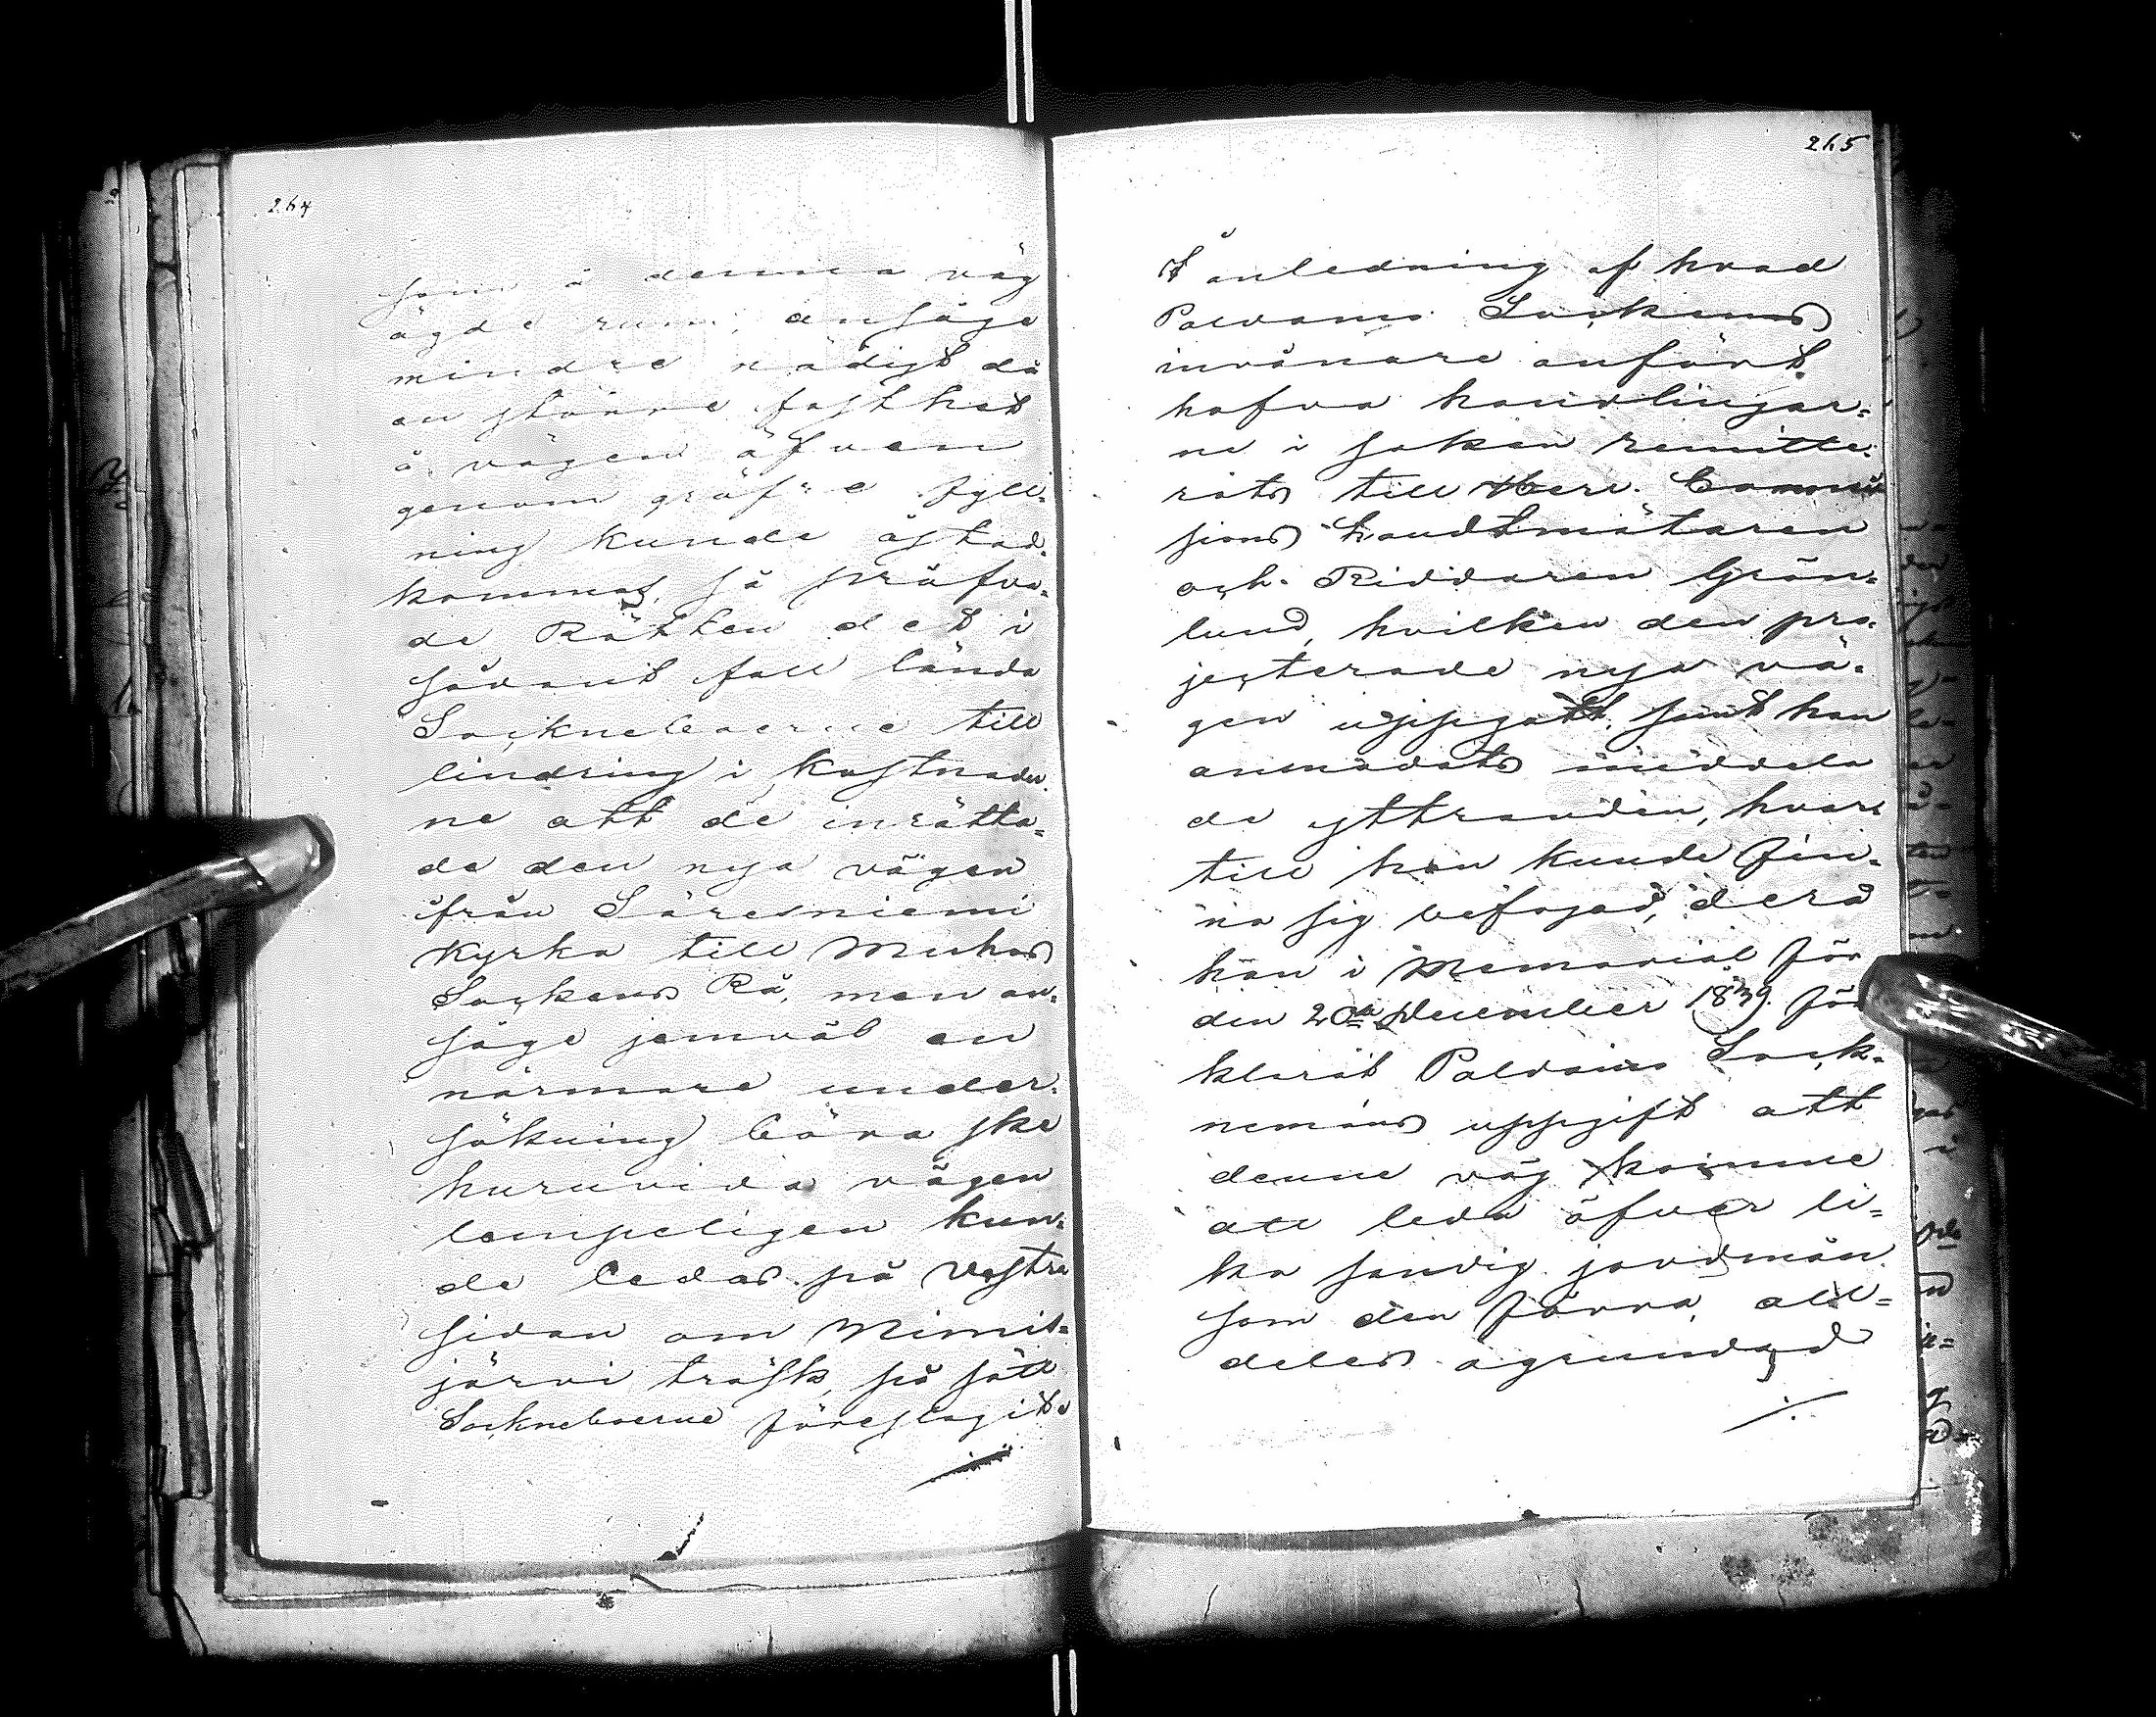 264
som å denna väg
ägde rum, ansåge
mindre nödigt då
en större fasthet
å vägen äfven
genom gräfre fyll-
ning kunde åstad-
kommas, så pröfva-
de Rätten det i
sådant fall lända
Sockneboerne till
lindring i kostnader-
ne att de inrätta-
de den nya vägen
ifrån Säresniemi
Kyrka till Muhos
Sockens Rå, men an-
såge jemväl en
närmare under-
sökning böra ske
huruvida vägen
lämpeligen kun-
de ledas på Vestra
sidan om Nimis-
järvi träsk, på sätt
Sockneboerne föreslagit.
265
I anledning af hvad
Paldamo Sockens
invånare anfört
hafva handlingar-
ne i saken remitte-
rats till Herr Commis
sions Landtmätaren
och Riddaren Grön-
lund, hvilken den pro-
jecterade nya vä-
gen uppgått, samt han
anmodats meddela
de yttranden, hvar-
till han kunde fin-
na sig befogad, derå
han i Memorial för
den 20de December 1839 för
klarat Paldamo Sock-
nemäns uppgift att
denne väg komme
att leda öfver li-
ka sandig jordmån
som den förra, all-
deles ogrundad